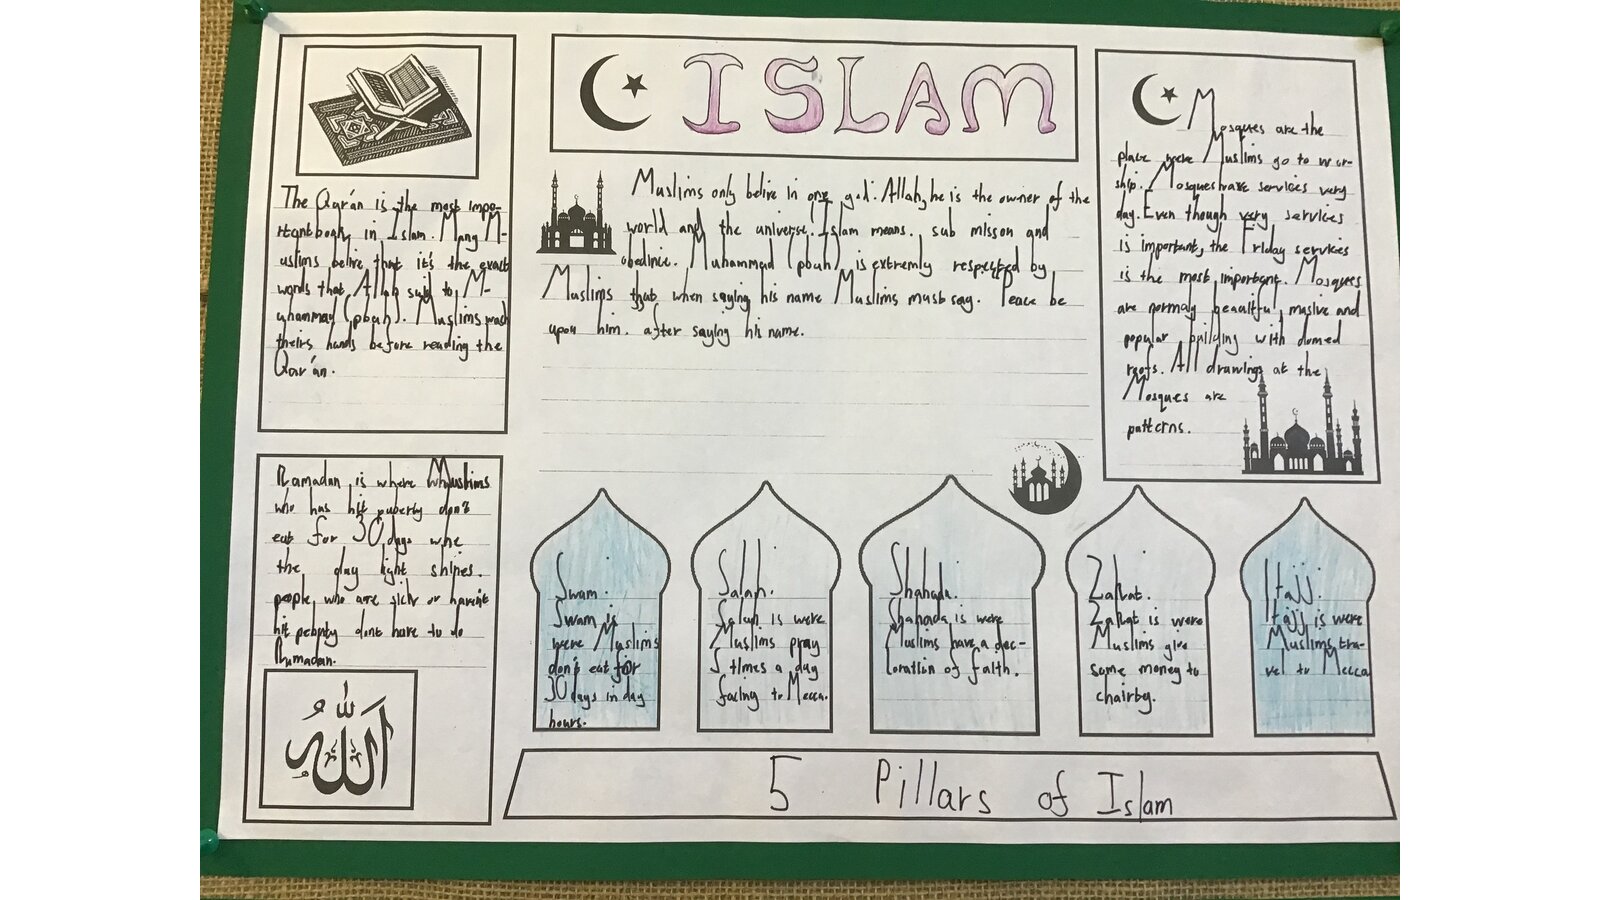 ISLAM
The Qur'an is the most impo-
rtant book in Islam. Many M-
uslims belive that it's the exact
words that Allah said to M-
uhammad (pbuh). Muslims wash
theirs hands before reading the
Qur'an.
Muslims only belive in one god: Allah, he is the owner of the
world and the universe. Islam means. sub misson and
obedince. Muhammad (pbuh) is extremly respected by
Muslims that when saying his name Muslims must say. Peace be
upon him. after saying his name.
Mosques are the
place were Muslims go to wor-
ship. Mosques have services very
day. Even though very services
is important, the Friday services
is the most important. Mosques
are normaly beautiful, masive and
popular building with domed
roofs. All drawings at the
Mosques are
patterns.
Ramadan is where Muslims
who has hit puberty don't
eat for 30 days whe
the day light shines.
people who are sick or haven't
hit peberty dont have to do
Ramadan.
الله
Swam.
Swam is
were Muslims
don't eat for
30 days in day
hours.
Salah.
Salah is were
Muslims pray
5 times a day
facing to Mecca.
Shahada.
Shahada is were
Muslims have a dec-
loration of faith.
Zakat.
Zakat is were
Muslims give
some money to
chairty.
Hajj.
Hajj is were
Muslims tra-
vel to Mecca
5 Pillars of Islam